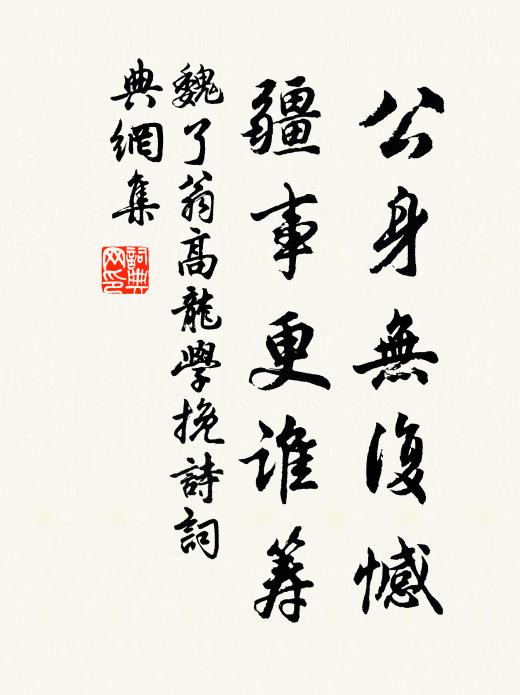 公身無復憾
疆事更誰筹
魏了翁高龍學挽詩詞
典網集
詞典網印